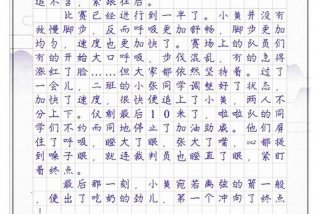 追不舍，紧跟在后。
比赛已经进行到一半了。小黄并没有
放慢脚步，反而呼吸更加舒畅，脚步更加
均匀，速度也更加快了。赛场上的队员们
有的开始大口呼吸，步伐混乱，有的急得
涨红了脸……但大家都依然坚持着。过了
一会儿，二班的小张同学调整好了状态，
加快了速度，很快便追上了小黄，两人不
分上下。仅剩最后10米了，啦啦队的同
学们不约而同地停止了加油助威。他们屏
住了呼吸，瞪大了眼，张大了嘴，心都提
到嗓子眼，就连裁判员也瞪直了眼，紧盯
着终点。
最后那一刻，小黄宛若离弦的箭一般
，使出了吃奶的劲儿，第一个冲向了终点